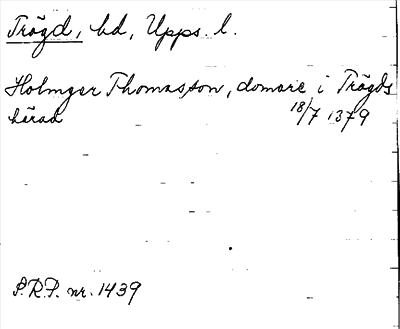 Trögd, hd, Upps. l.
Holmger Thomasson, domare i Trögds
härad 18/7 1379
S.R.P. nr. 1439